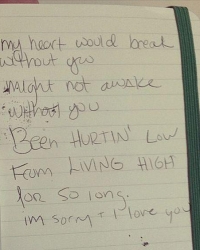 my heart would break
without you
might not awake
without you
BEEN HURTIN' LOW
FROM LIVING HIGH
for so long.
im sorry + i love you